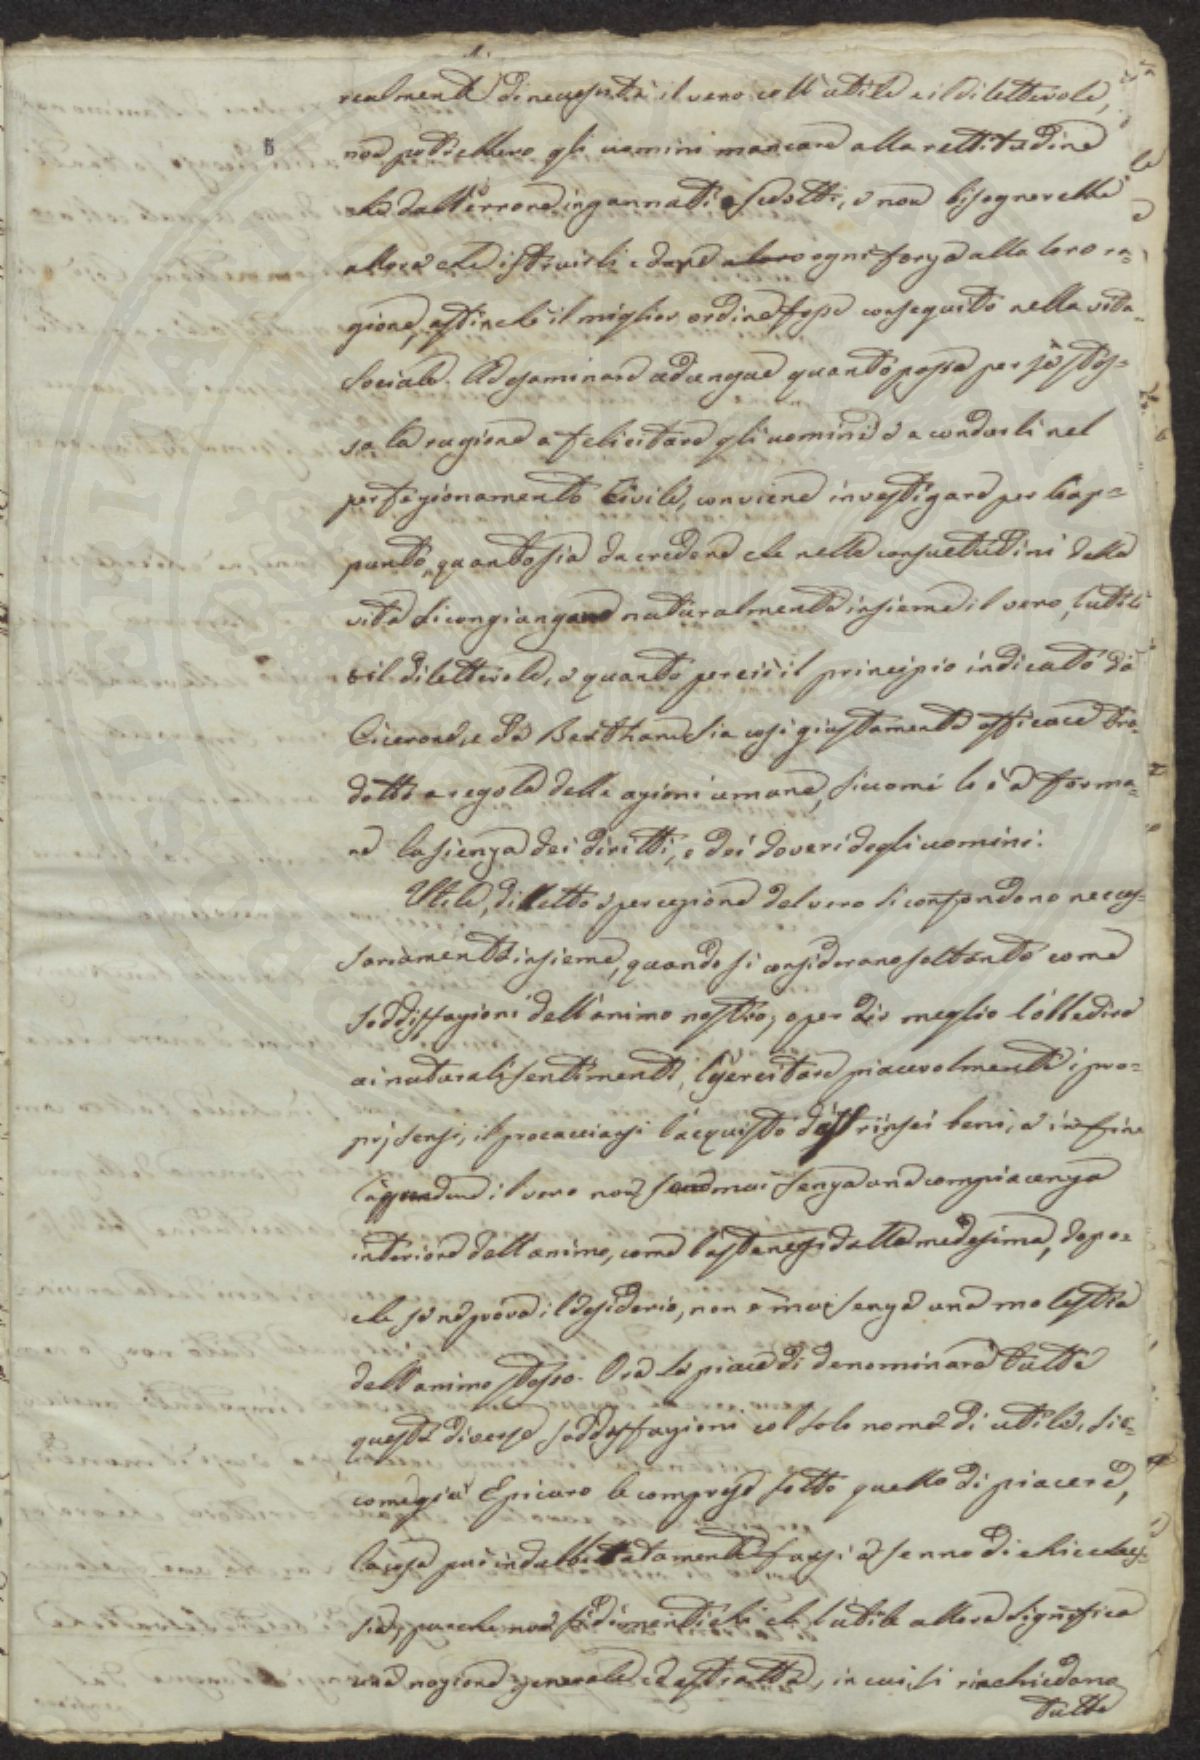 1.
realmente di necessità il vero coll'utile e il dilettevole,
non potrebbero gli uomini mancare alla rettitudine
che dall'errore ingannati e sedotti, e non bisognerebbe
allora che istruirli e dare a loro ogni forza alla loro ra=
gione, affinché il miglior ordine fosse conseguito nella vita
sociale. Ad esaminare adunque quanto possa per sè stes=
sa la ragione a felicitare gli uomini e a condurli nel
perfezionamento civile, conviene investigare per l'ap=
punto, quanto sia da credere che nelle consuetudini della
vita si congiungano naturalmente insieme il vero, l'utile
e il dilettevole, e quanto perciò il principio indicato da
Cicerone, e da Bentham sia così giustamente efficace tra=
dotto a regola delle azioni umane, siccome lo è a forma=
re la sienza dei diritti, e dei doveri degli uomini.
Utile, diletto e percezione del vero si confondono neces=
sariamente insieme, quando si considerano soltanto come
soddisfazioni dell'animo nostro; o per dir meglio l'obbedire
ai naturali sentimenti, l'esercitare piacevolmente i pro=
prj sensi, il procacciarsi l'acquisto d'estrinseci beni, e infine
il vero non mai senza una compiacenza
interiore dell'animo, come l'astenersi dalle medesime, dopo=
che se ne prova il desiderio, non è mai senza una molestia
dell'animo stesso. Ora se piace di denominare tutte
queste diverse soddisfazioni col solo nome di utile, sic=
come già Epicuro le comprese sotto quello di piacere,
la cosa può indubbitatamente farsi a senno di chicches=
sia, purché non si dimentichi che l'utile allora significa
una nozione generale ed astratta, in cui si rinchiedono
tutte